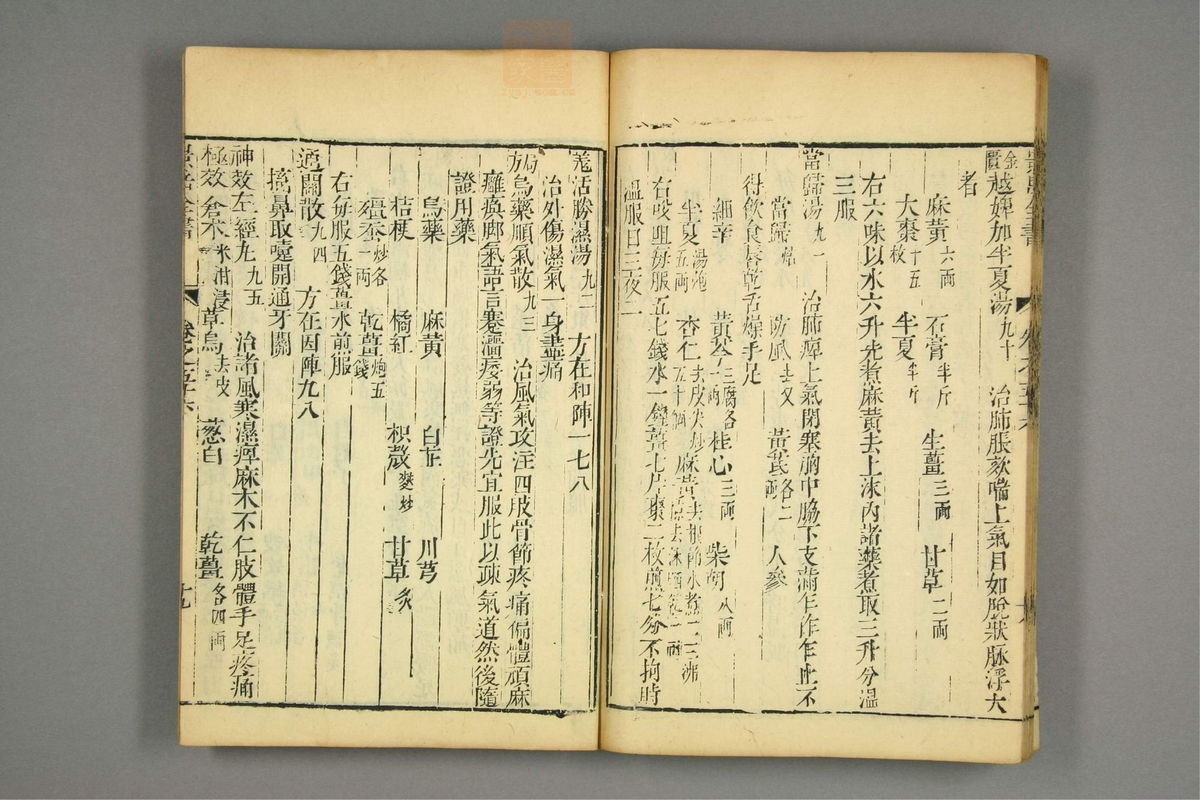 金匱越婢加半夏湯九十　治肺脹欬喘上氣目如脫狀脉浮大
者
麻黃六兩　石膏半斤　生薑三兩　甘草二兩
大棗十五枚　半夏半斤
右六味以水六升先煮麻黃去上沫內諸藥煮取三升分溫
三服
當歸湯九一　治肺痺上氣閉塞胸中脇下支滿乍作乍止不
得飲食唇乾舌燥手足
當歸　防風去叉　黃芪各二兩　人參
細辛　黃芩　桂心三兩　柴胡八兩
半夏湯泡五兩　杏仁去皮尖炒五十個　麻黃去根節水煮一二沸
右㕮咀每服五七錢水一鍾薑七片棗二枚煎七分不拘時
溫服日三夜二
羗活勝濕湯九二　方在和陣一七八
治外傷濕氣一身盡痛
局方烏藥順氣散九三　治風氣攻注四肢骨節疼痛偏體頑麻
癱瘓脚氣語言蹇澀痿弱等證先宜服此以疎氣道然後隨
證用藥
烏藥　麻黃　白芷　川芎
桔梗　橘紅　枳殼麥炒　甘草炙
殭蚕炒各一兩　乾薑炮五錢
右每服五錢薑水煎服
通關散九四　方在因陣九八
搐鼻取嚏開通牙關
神效左經丸九五　治諸風寒濕痺麻木不仁肢體手足疼痛
極效　倉木米泔浸　草烏去皮　葱白　乾薑各四兩